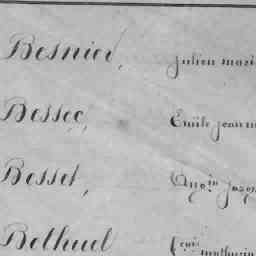 Besnier, Julien mari
Bessec, Emile jean m
Bessel, Aug.in
Bethuel Louis mathurin